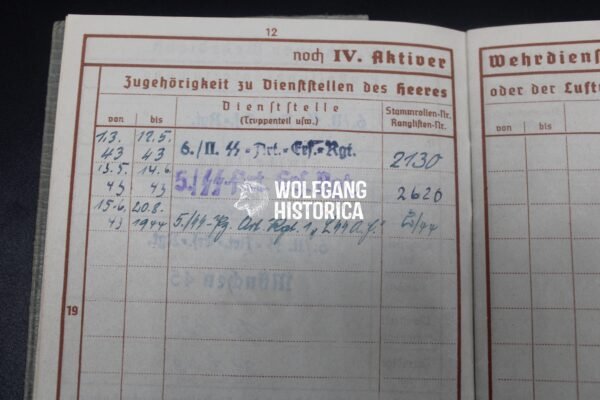 12
noch IV. Aktiver
Wehrdiens
Zugehörigkeit zu Dienststellen des Heeres
oder der Luft
von bis
Dienststelle
(Truppenteil usw.)
Stammrollen-Nr.
Ranglisten-Nr.
1.3. 12.5.
43 43
6./II. SS-Art.-Ers.-Rgt.
2130
13.5. 14.6
43 43
5./SS-Art.
2620
15.6. 20.8.
43 1944
5./SS-Pz. Art. Rgt. 1 „LSSAH."
WOLFGANG
HISTORICA
München 45
19